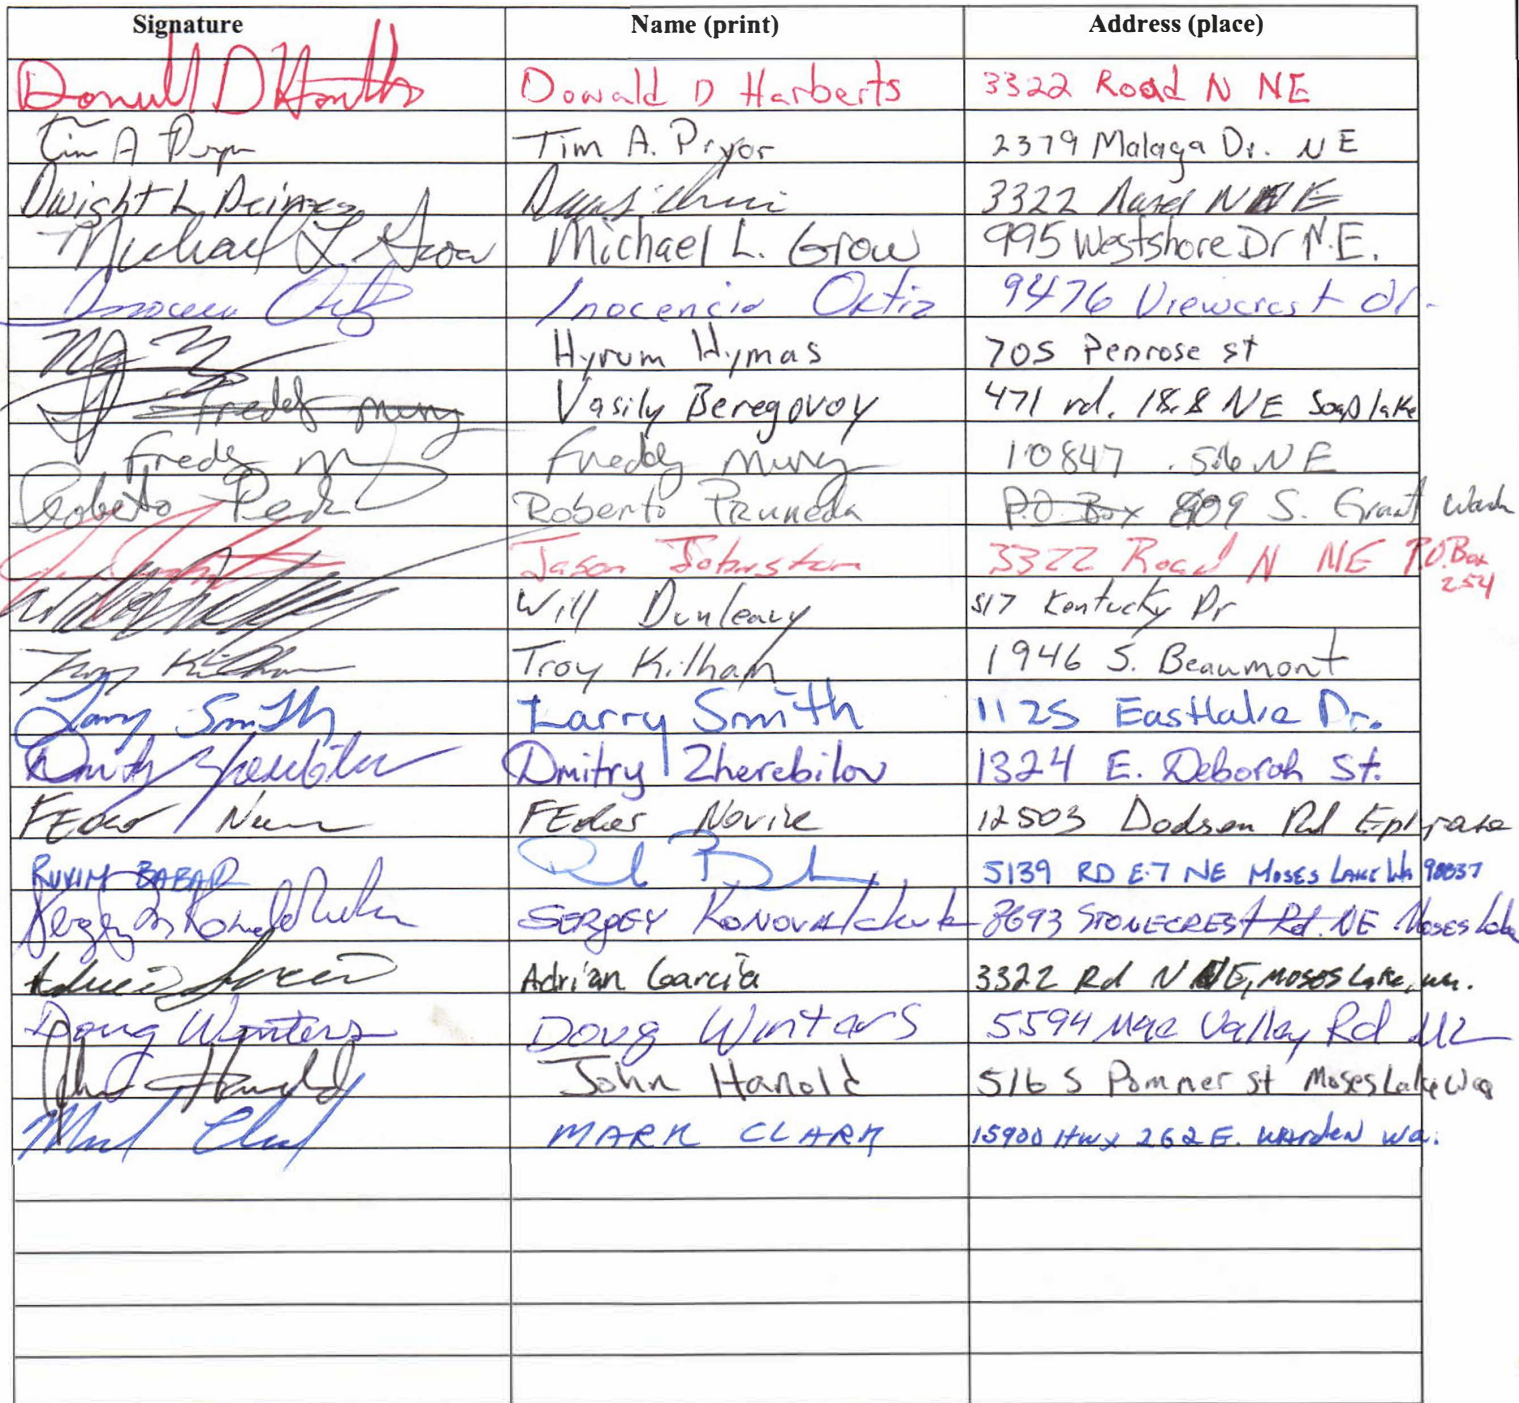 Signature Name (print) Address (place)
Donald D Harberts Donald D Harberts 3322 Road N NE
Tim A Pryor Tim A. Pryor 2379 Malaga Dr. NE
Dwight L 3322 N E
Michael L Grow Michael L. Grow 995 Westshore Dr N.E.
Inocencio Ortiz 9476 Viewcrest dr.
Hyrum Hymas 705 Penrose st
Vasily Beregovoy 471 rd. 18.8 NE Soap lake
Fredy Freddy 10847 NE
Roberto Roberto Pruneda P.O Box 909 S. Grant Wash
Jason Johnston 3322 Road N NE P.O.Box
254
Will Dunleavy 517 Kentucky Dr
Troy Kilham Troy Kilham 1946 S. Beaumont
Larry Smith Larry Smith 1125 Eastlake Dr.
Dmitry Zherebilov 1324 E. Deborah St.
FEdor 12503 Dodson Rd Ephrata
RUVIM BABAR 5139 RD E.7 NE MOSES LAKE Wa 98837
SERGEY KONOVALchuk STONECREST Rd. NE Moses Lake
Adrian Garcia 3322 Rd N NE, Moses Lake, wa.
Doug Winters Doug Winters 5594 Mae Valley Rd ML
John Harold 516 S Moses Lake Wa
Mark Clark MARK CLARK 15900 Hwy 262 E. WARDEN Wa.